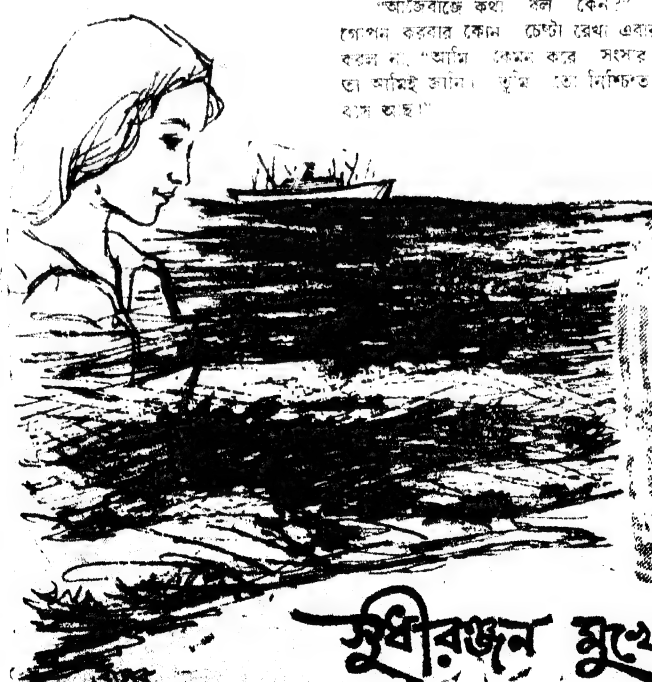 "আজেবাজে কথা বল কেন?"
গোপন করবার কোন চেষ্টা রেখা এবার
করল না, "আমি কেমন করে সংসার
তা আমিই জানি। তুমি তো নিশ্চিন্ত
বসে আছ!"
সুধীরঞ্জন মুখো